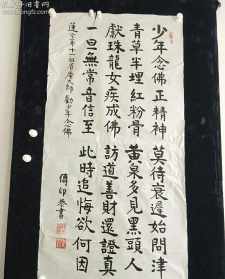 少年念佛正精神 莫待衰遲始問津
青草半埋紅粉骨 黃泉多見黑頭人
獻珠龍女疾成佛 訪道善財還證真
一旦無常音信至 此時追悔欲何因
蓮宗第十一祖省庵師 勸少年念佛
傳印恭書